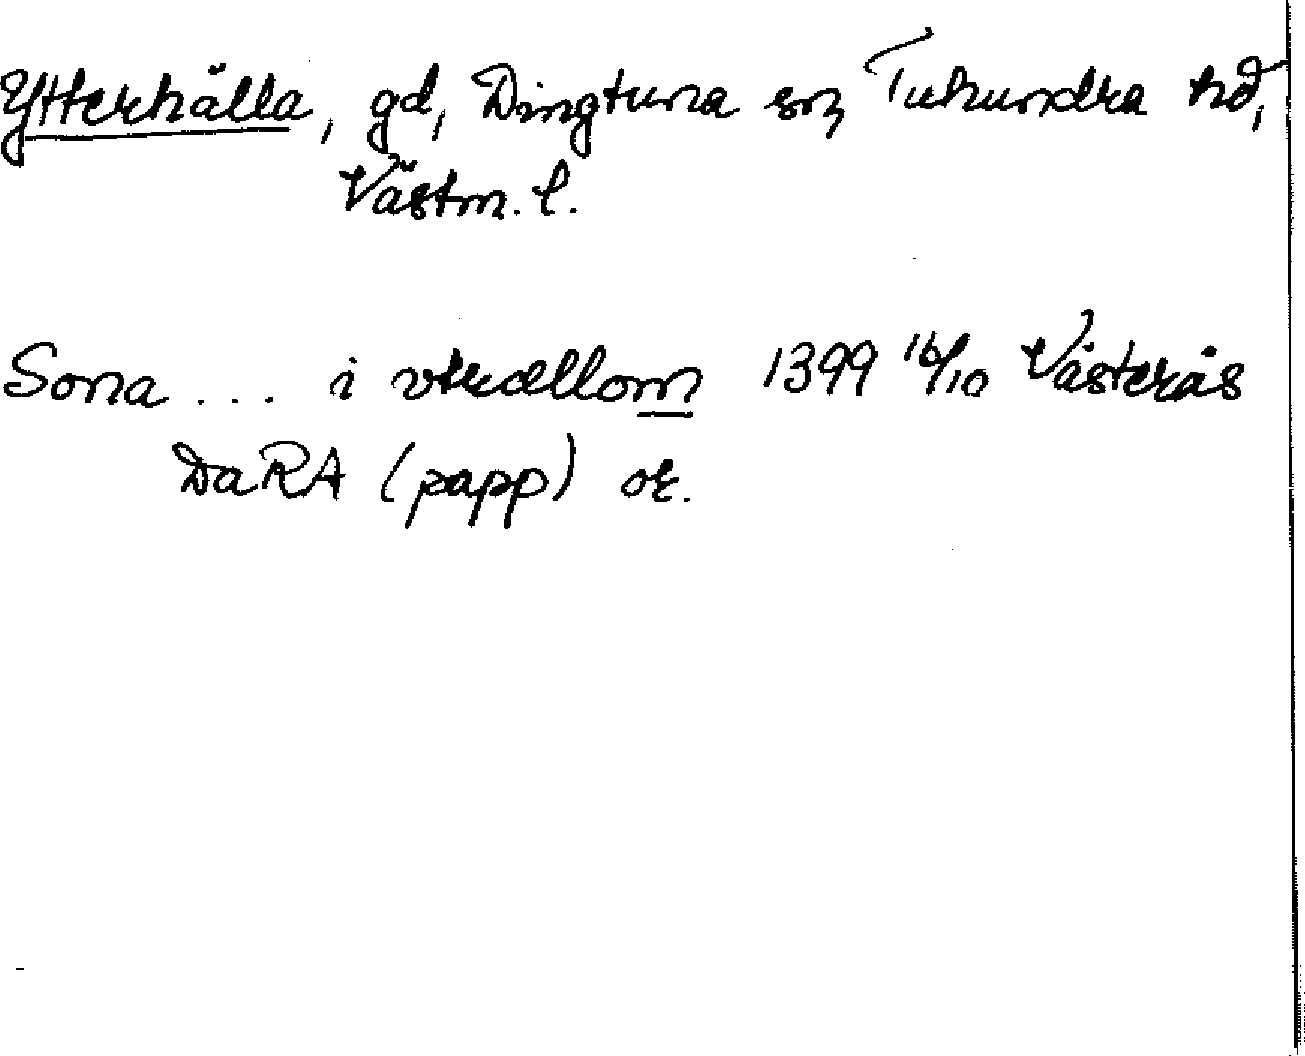 Ytterhälla, gd, Dingtuna sn, Tuhundra hd,
Västm. l.
Sona ... i vthællom 1399 16/10 Västerås
DaRA (papp) or.